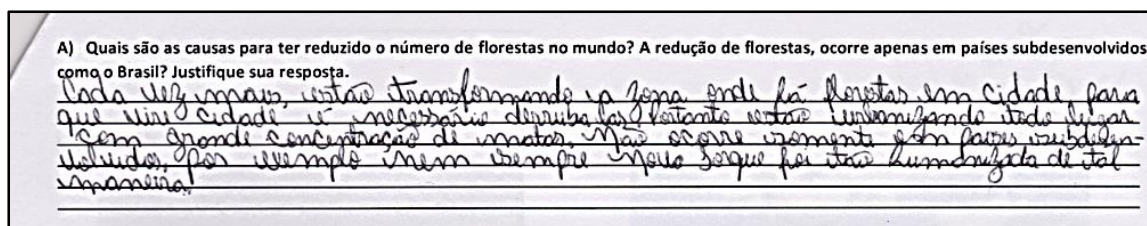 A) Quais são as causas para ter reduzido o número de florestas no mundo? A redução de florestas, ocorre apenas em países subdesenvolvidos
como o Brasil? Justifique sua resposta.
Cada vez mais, estão transformando a zona onde há florestas em cidade para
que vire cidade é necessário derruba-las, Portanto estão urbanizando todo lugar
com grande concentração de matas. Não ocorre somente em países subdesen
volvidos, por exemplo nem sempre Nova Iorque foi tão humanizada de tal
maneira.